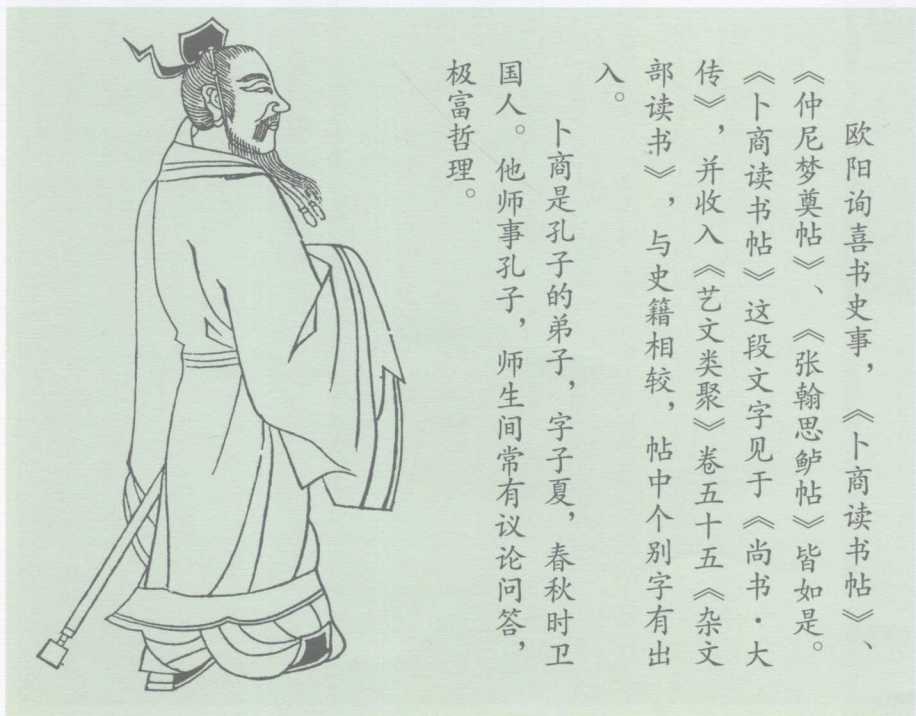 欧阳询喜书史事，《卜商读书帖》、
《仲尼梦奠帖》、《张翰思鲈帖》皆如是。
《卜商读书帖》这段文字见于《尚书·大
传》，并收入《艺文类聚》卷五十五《杂文
部读书》，与史籍相较，帖中个别字有出
入。
卜商是孔子的弟子，字子夏，春秋时卫
国人。他师事孔子，师生间常有议论问答，
极富哲理。